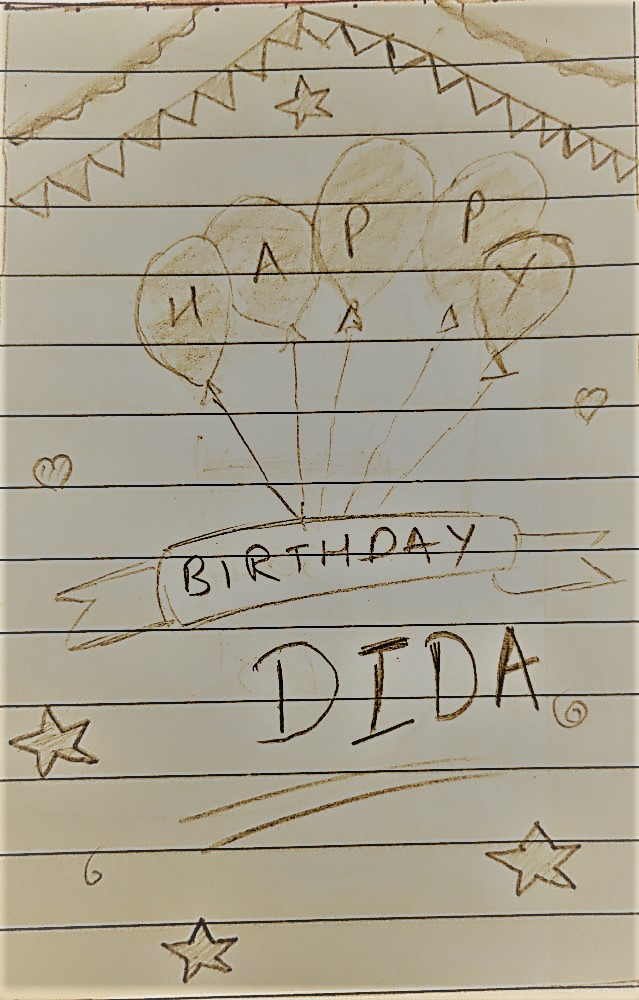 HAPPY
BIRTHDAY
DIDA